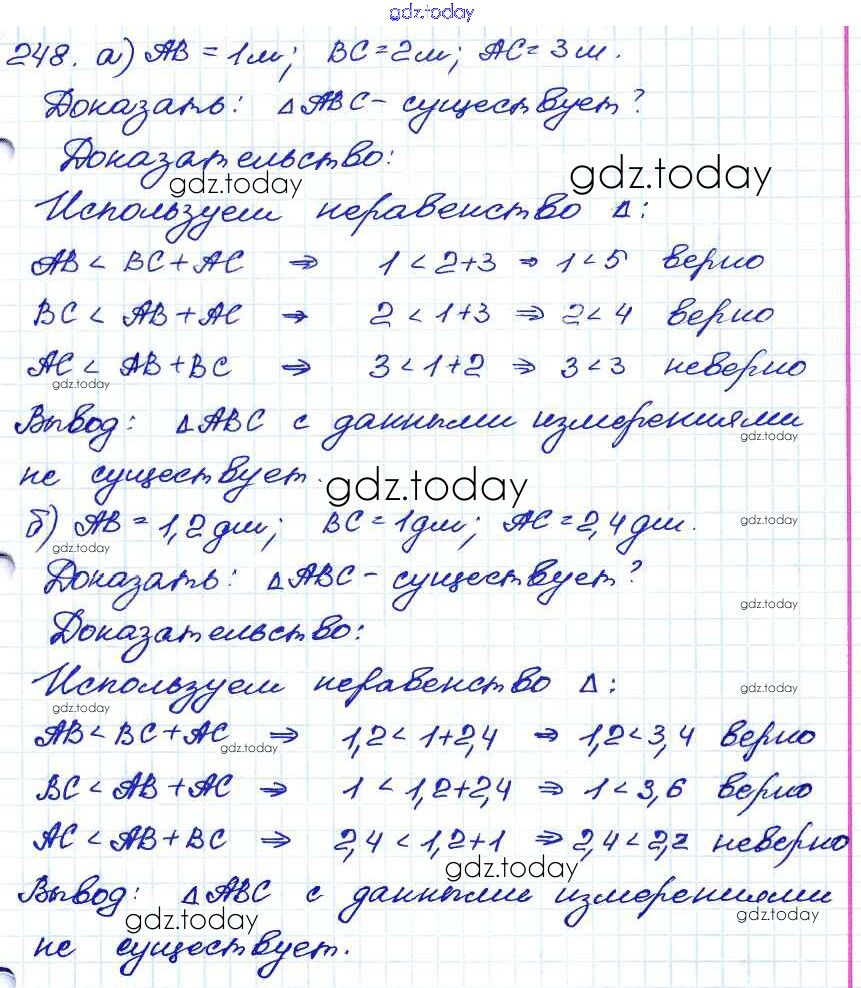 gdz.today
248. а) AB = 1м; BC = 2м; AC = 3м.
Доказать: △ABC - существует?
Доказательство:
gdz.today gdz.today
Используем неравенство △:
AB < BC + AC ⇒ 1 < 2+3 ⇒ 1 < 5 верно
BC < AB + AC ⇒ 2 < 1+3 ⇒ 2 < 4 верно
AC < AB + BC ⇒ 3 < 1+2 ⇒ 3 < 3 неверно
gdz.today
Вывод: △ABC с данными измерениями
gdz.today
не существует.
gdz.today
б) AB = 1,2 дм; BC = 1 дм; AC = 2,4 дм.
gdz.today
gdz.today
Доказать: △ABC - существует?
gdz.today
Доказательство:
Используем неравенство △:
gdz.today
gdz.today
AB < BC + AC ⇒ 1,2 < 1+2,4 ⇒ 1,2 < 3,4 верно
gdz.today
BC < AB + AC ⇒ 1 < 1,2+2,4 ⇒ 1 < 3,6 верно
AC < AB + BC ⇒ 2,4 < 1,2+1 ⇒ 2,4 < 2,2 неверно
gdz.today
Вывод: △ABC с данными измерениями
gdz.today gdz.today
не существует.